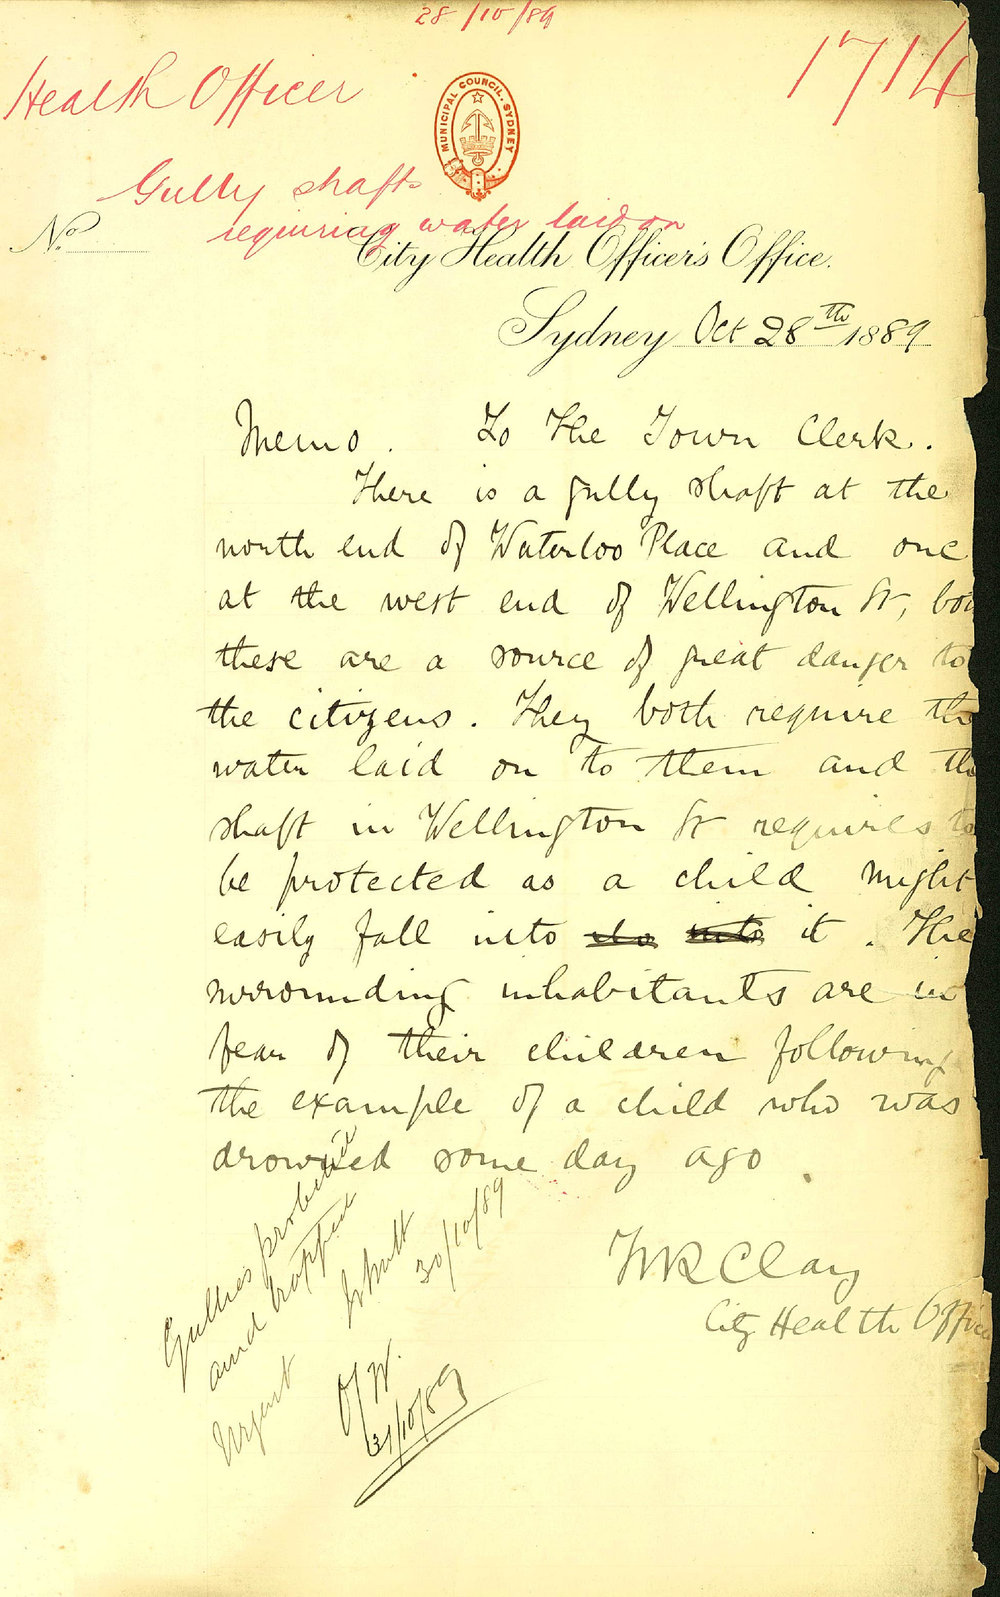 28/10/89
Health Officer
1714
MUNICIPAL COUNCIL. SYDNEY
Gully shafts
requiring water laid on
No.
City Health Officer's Office.
Sydney Oct 28th 1889
Memo. To The Town Clerk.
There is a gully shaft at the
north end of Waterloo Place and one
at the west end of Wellington St, bo
these are a source of great danger to
the citizens. They both require the
water laid on to them and th
shaft in Wellington St requires to
be protected as a child might
easily fall into it. The
surrounding inhabitants are in
fear of their children following
the example of a child who was
drowned some day ago.
W R Clay
City Health Office
Gullies
and trapped
Urgent
30/10/89
31/10/89